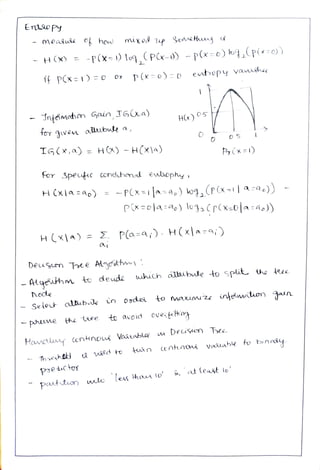 Entropy
- measure of how mixed up something is
- H(x) = -p(x=1) log₂(P(x=1)) - p(x=0) log₂(p(x=0))
if p(x=1)=0 or p(x=0)=0 entropy vanishes
1
- Information Gain, IG(x,a)
H(x) 0.5
for given attribute a.
0
0 0.5 1
IG(x,a) = H(x) - H(x|a)
Pr(x=1)
For specific conditional entropy,
H(x|a=a₀) = -P(x=1|a=a₀) log₂(P(x=1|a=a₀)) -
P(x=0|a=a₀) log₂(P(x=0|a=a₀))
H(x|a) = Σ P(a=aᵢ). H(x|a=aᵢ)
aᵢ
Decision Tree Algorithm:
- Algorithm to decide which attribute to split the tree
node
- Select attribute in order to maximize information gain
- prune the tree to avoid overfitting
Handling continous Variables in Decision Tree
- Threshold is used to turn continous variable to binary
predictor
- partition into 'less than 10' & 'at least 10'